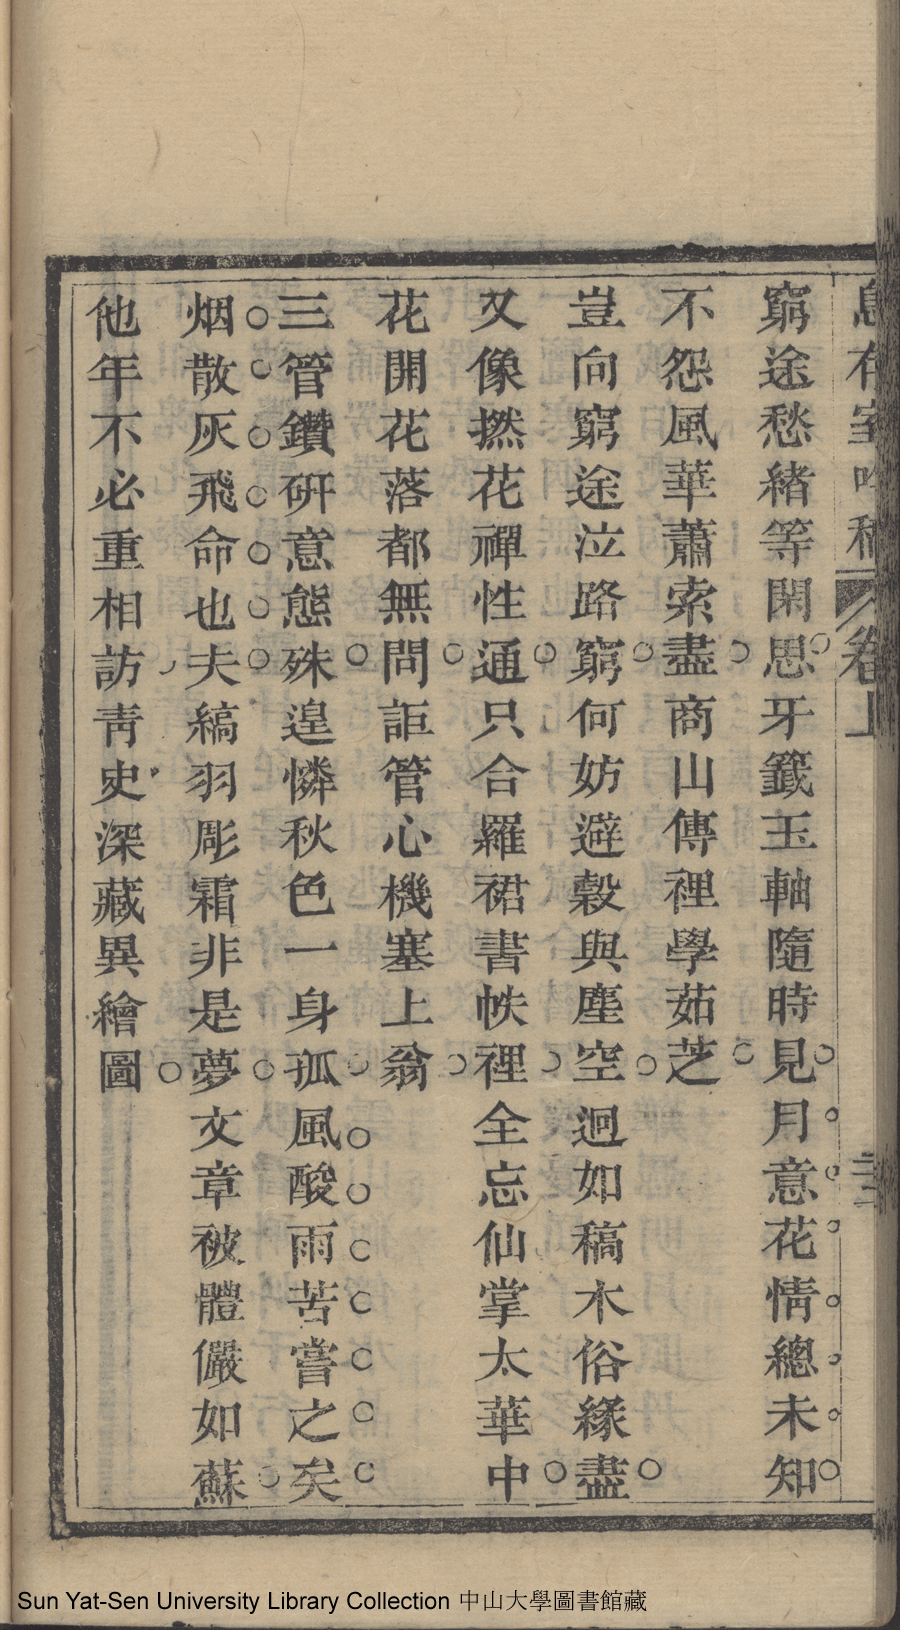 息存室吟稿 卷上 三
窮途愁緒等閑思牙籤玉軸隨時見月意花情總未知
不怨風華蕭索盡商山傳裡學茹芝
豈向窮途泣路窮何妨避穀與塵空迥如稿木俗緣盡
又像撚花禪性通只合羅裙書帙裡全忘仙掌太華中
花開花落都無問詎管心機塞上翁
三管鑽硏意態殊遑憐秋色一身孤風酸雨苦嘗之矣
烟散灰飛命也夫縞羽彫霜非是夢文章被體儼如蘇
他年不必重相訪靑史深藏異繪圖
Sun Yat-Sen University Library Collection 中山大學圖書館藏